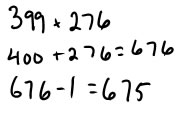 399 + 276
400 + 276 = 676
676 - 1 = 675